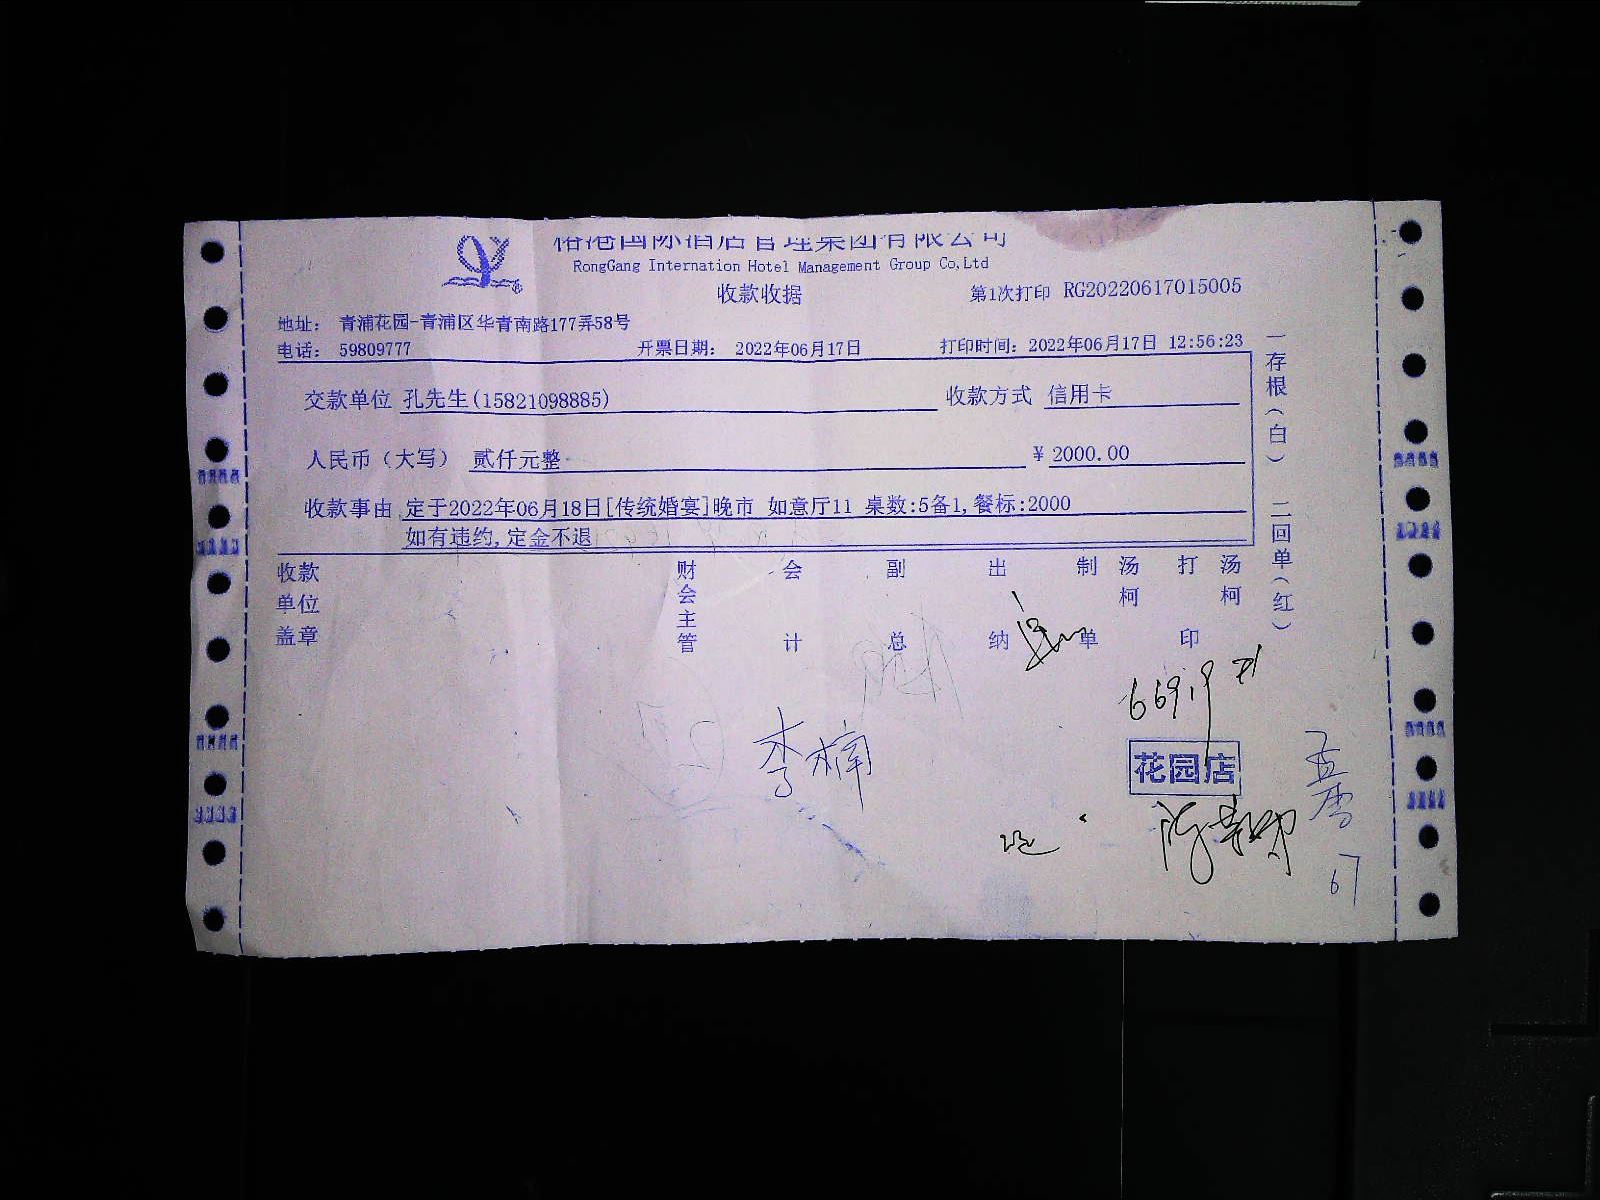 国际酒店管理集团有限公司
RongGang Internation Hotel Management Group Co,Ltd
收款收据
第1次打印 RG20220617015005
地址： 青浦花园-青浦区华青南路177弄58号
电话： 59809777 开票日期： 2022年06月17日 打印时间：2022年06月17日 12:56:23
交款单位 孔先生(15821098885) 收款方式 信用卡
人民币（大写） 贰仟元整 ¥ 2000.00
收款事由 定于2022年06月18日[传统婚宴]晚市 如意厅11 桌数:5备1,餐标:2000
如有违约,定金不退
收款单位盖章 财会主管 会计 副总 出纳 制单 汤柯 打印 汤柯
一存根（白） 二回单（红）
669.9
李楠
花园店
67